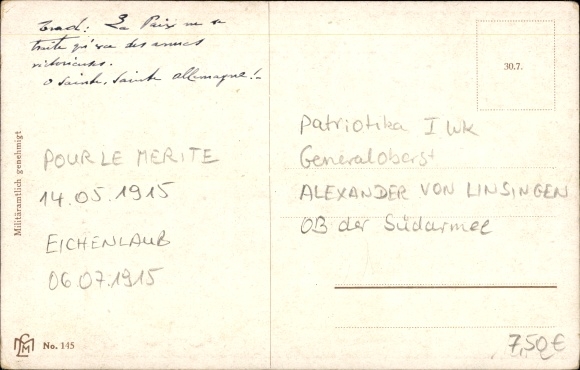 Trad: La Paix ne se
traite qu'avec des armes
victorieuses.
O Sainte, Sainte Allemagne!-
30.7.
Militäramtlich genehmigt
POUR LE MERITE
14.05.1915
EICHENLAUB
06.07.1915
Patriotika I WK
Generaloberst
ALEXANDER VON LINSINGEN
OB der Südarmee
No. 145
7,50€